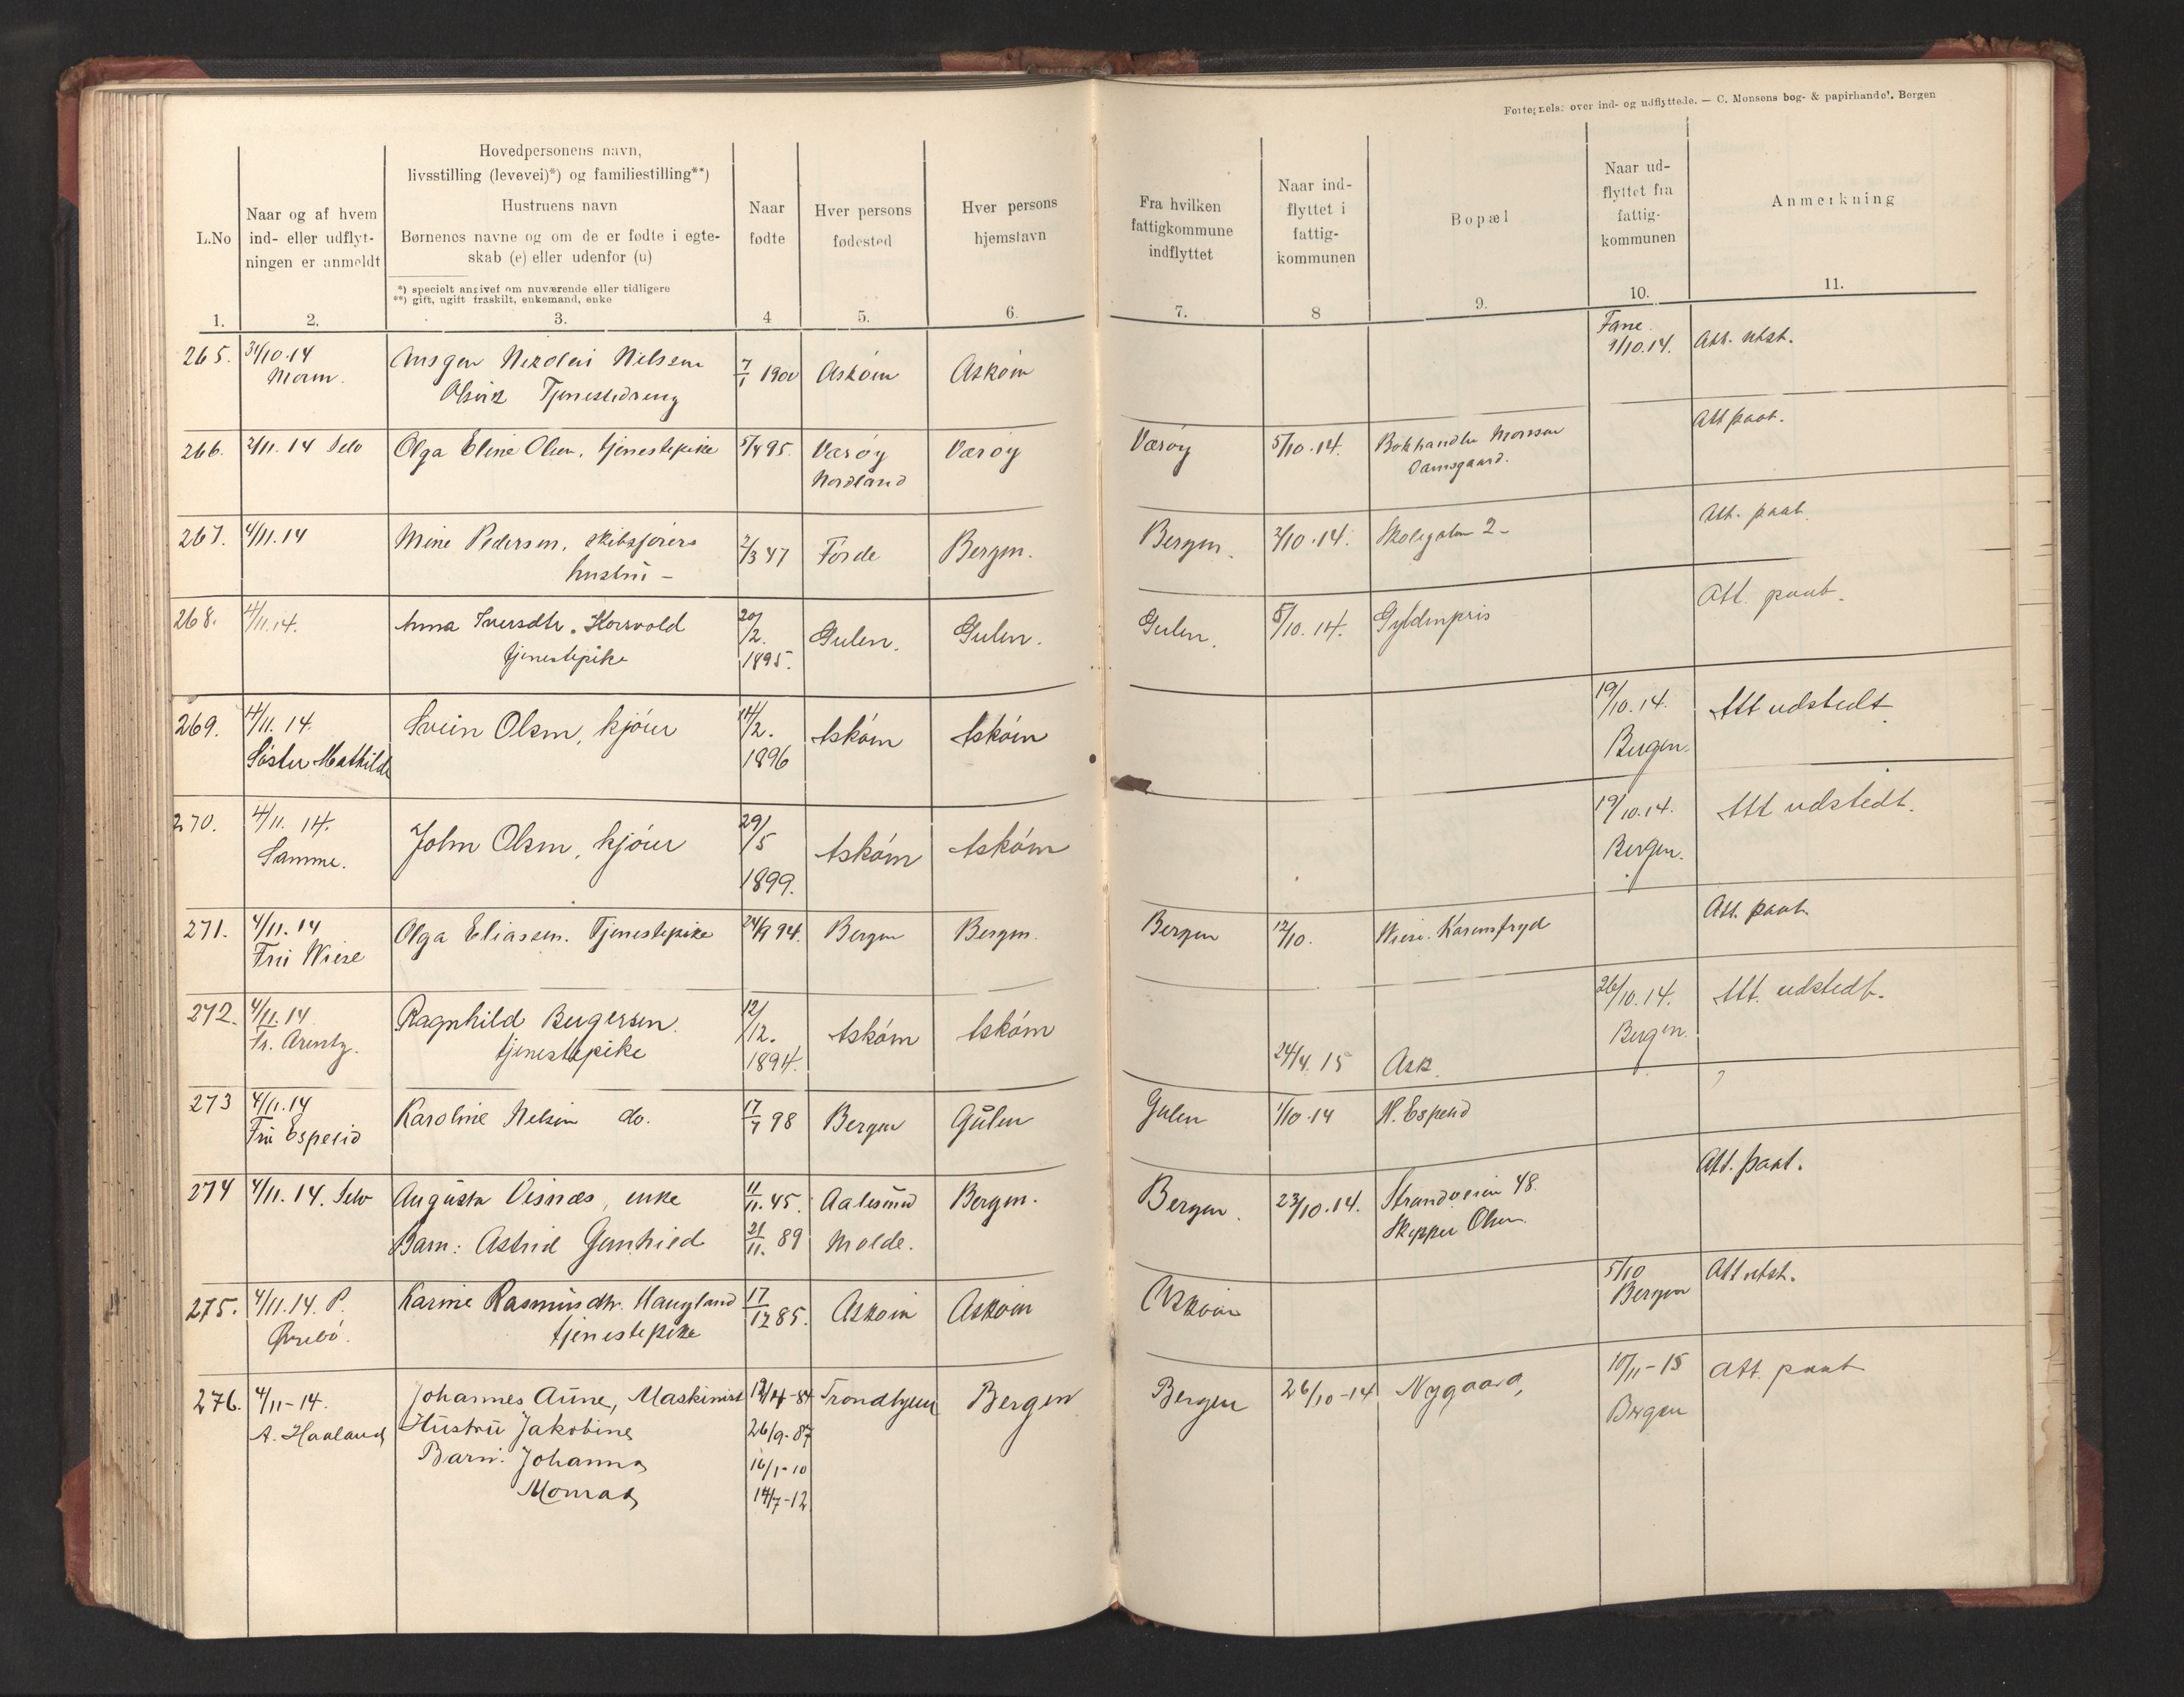 Fortegnelse over ind- og udflyttede. — C. Monsens bog- & papirhandel. Bergen
L.No
Naar og af hvem
ind- eller udflyt-
ningen er anmeldt
Hovedpersonens navn,
livsstilling (levevei)*) og familiestilling**)
Hustruens navn
Børnenes navne og om de er fødte i egte-
skab (e) eller udenfor (u)
*) specielt angivet om nuværende eller tidligere
**) gift, ugift fraskilt, enkemand, enke
Naar
fødte
Hver persons
fødested
Hver persons
hjemstavn
Fra hvilken
fattigkommune
indflyttet
Naar ind-
flyttet i
fattig-
kommunen
Bopæl
Naar ud-
flyttet fra
fattig-
kommunen
Anmerkning
1. 2. 3. 4 5. 6. 7. 8 9. 10. 11.
265. 31/10.14 Ansgar Nikolai Nilsen 7/1 1900 Askøin Askøin Fane 9/10.14. Att. utst.
Morin. Olsvik Tjenestedreng
266. 2/11.14 Selv Olga Eline Olsen, tjenestepike 5/4 95. Værøy Værøy Værøy 5/10.14. Bokhandler Monsen Att paat.
Nordland Damsgaard.
267. 4/11.14 Mine Pedersen, skibsførers 2/3 47 Førde Bergen. Bergen. 3/10.14. Skolegaten 2- Att. paat.
hustru -
268. 4/11.14. Anna Iversdtr. 20/2. Gulen. Gulen. Gulen. 5/10.14. Gyldenpris Att. paat.
tjenestepike 1895.
269. 4/11.14. Svein Olsen, kjører 14/2. Askøin Askøin 19/10.14. Att udstedt
Søster Mathilde 1896 Bergen.
270. 4/11.14. John Olsen, kjører 29/5 Askøin Askøin 19/10.14. Att udstedt.
Samme. 1899. Bergen.
271. 4/11.14 Olga Eliassen. Tjenestepike 24/9 94. Bergen Bergen. Bergen 12/10. Wiese. Karensfryd Att. paat.
Fru Wiese
272. 4/11.14 Ragnhild Bergersen. 12/12. Askøin Askøin 26/10.14. Att. udstedt.
Fr. Arentz. tjenestepike 1894. 24/4.15 Ask. Bergen.
273 4/11.14 Karoline Nelsen do. 17/7 98 Bergen Gulen Gulen 1/10.14 H. Espelid
Fru Espelid
274 4/11.14. Selv Augusta Oisnæs, enke 11/11.45. Aalesund Bergen. Bergen. 23/10.14. Strandveien 48. Att. paat.
Barn: Astrid Gunhild 21/11.89 Molde. Skipper Olsen
275. 4/11.14. P. Karine Rasmusdtr. Haugland 17/12 85. Askøin Askøin Askøin 5/10 Att utst.
Øvrebø. tjenestepike Bergen
276. 4/11-14. Johannes Aune, Maskinist 12/4-84 Trondhjem Bergen Bergen 26/10-14 Nygaard, 10/11-15 Att. paat
A. Haaland Hustru Jakobine 26/9-87 Bergen
Barn: Johanna 16/1-10
Monrad 14/7-12